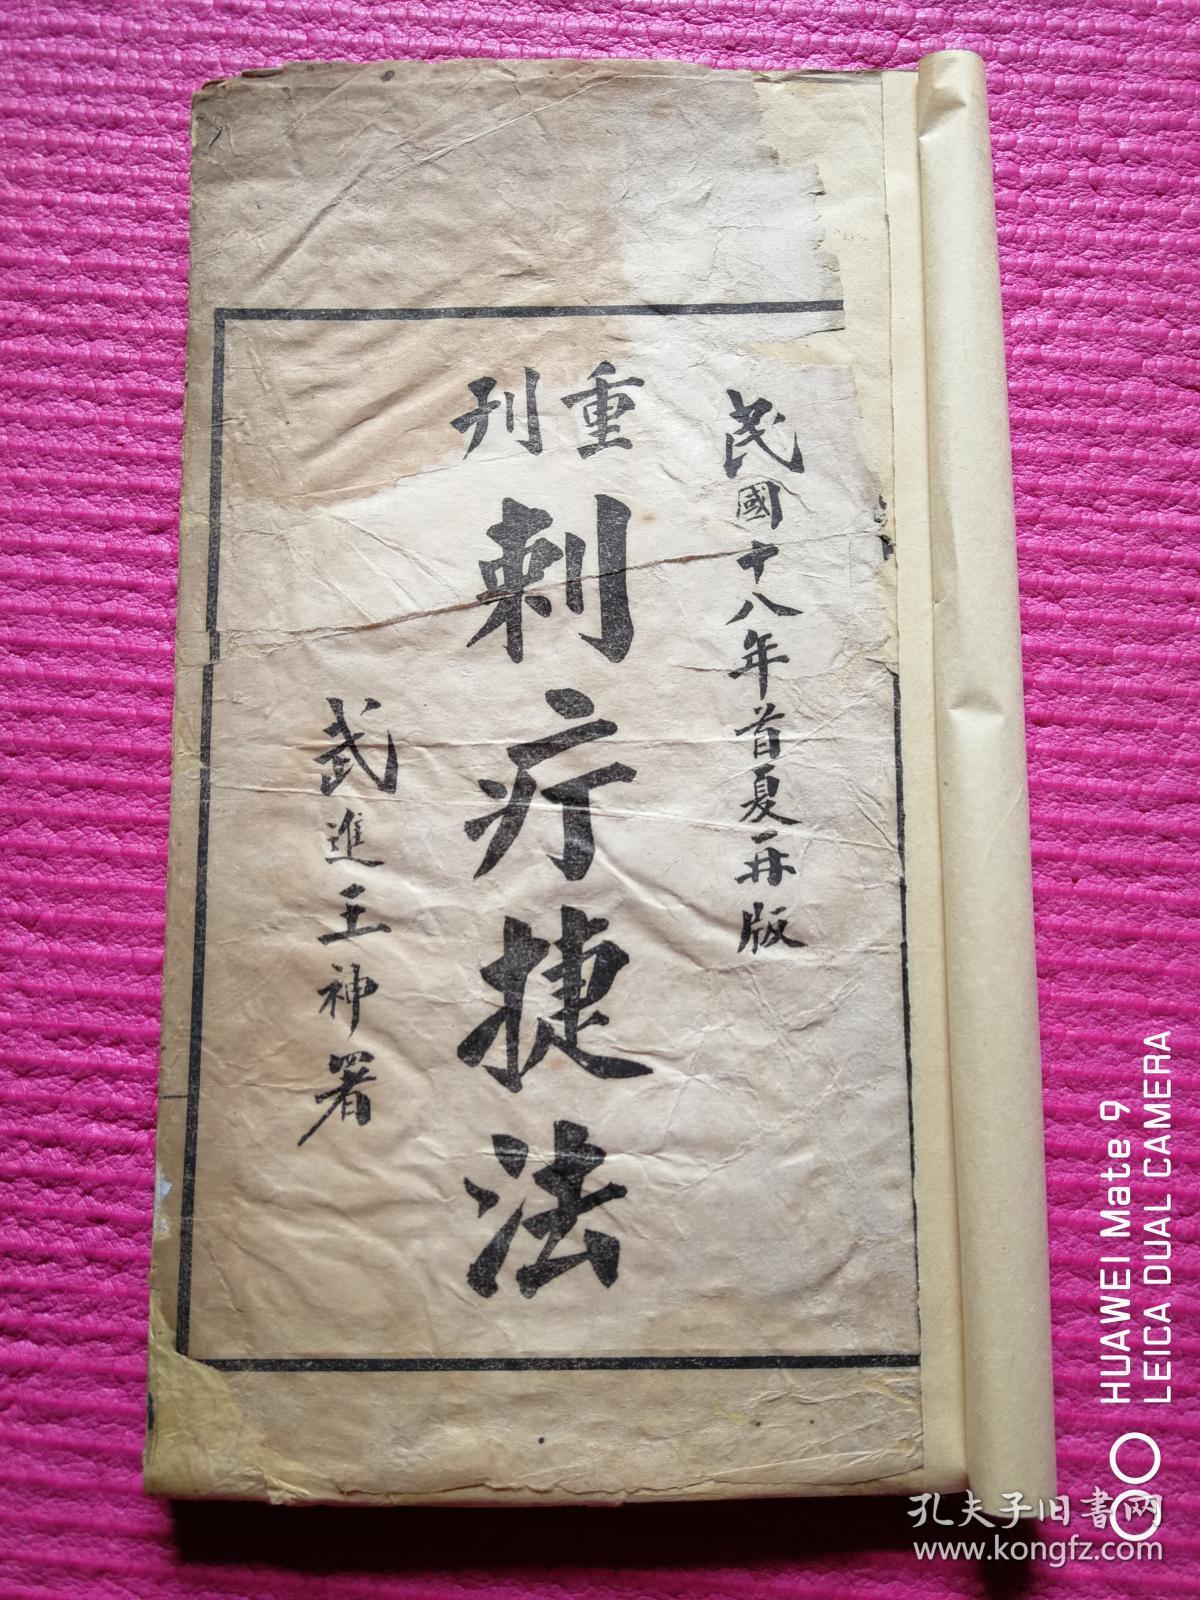 民國十八年首夏再版
重刊
刺疔捷法
武進王神署
HUAWEI Mate 9
LEICA DUAL CAMERA
孔夫子旧書网
www.kongfz.com